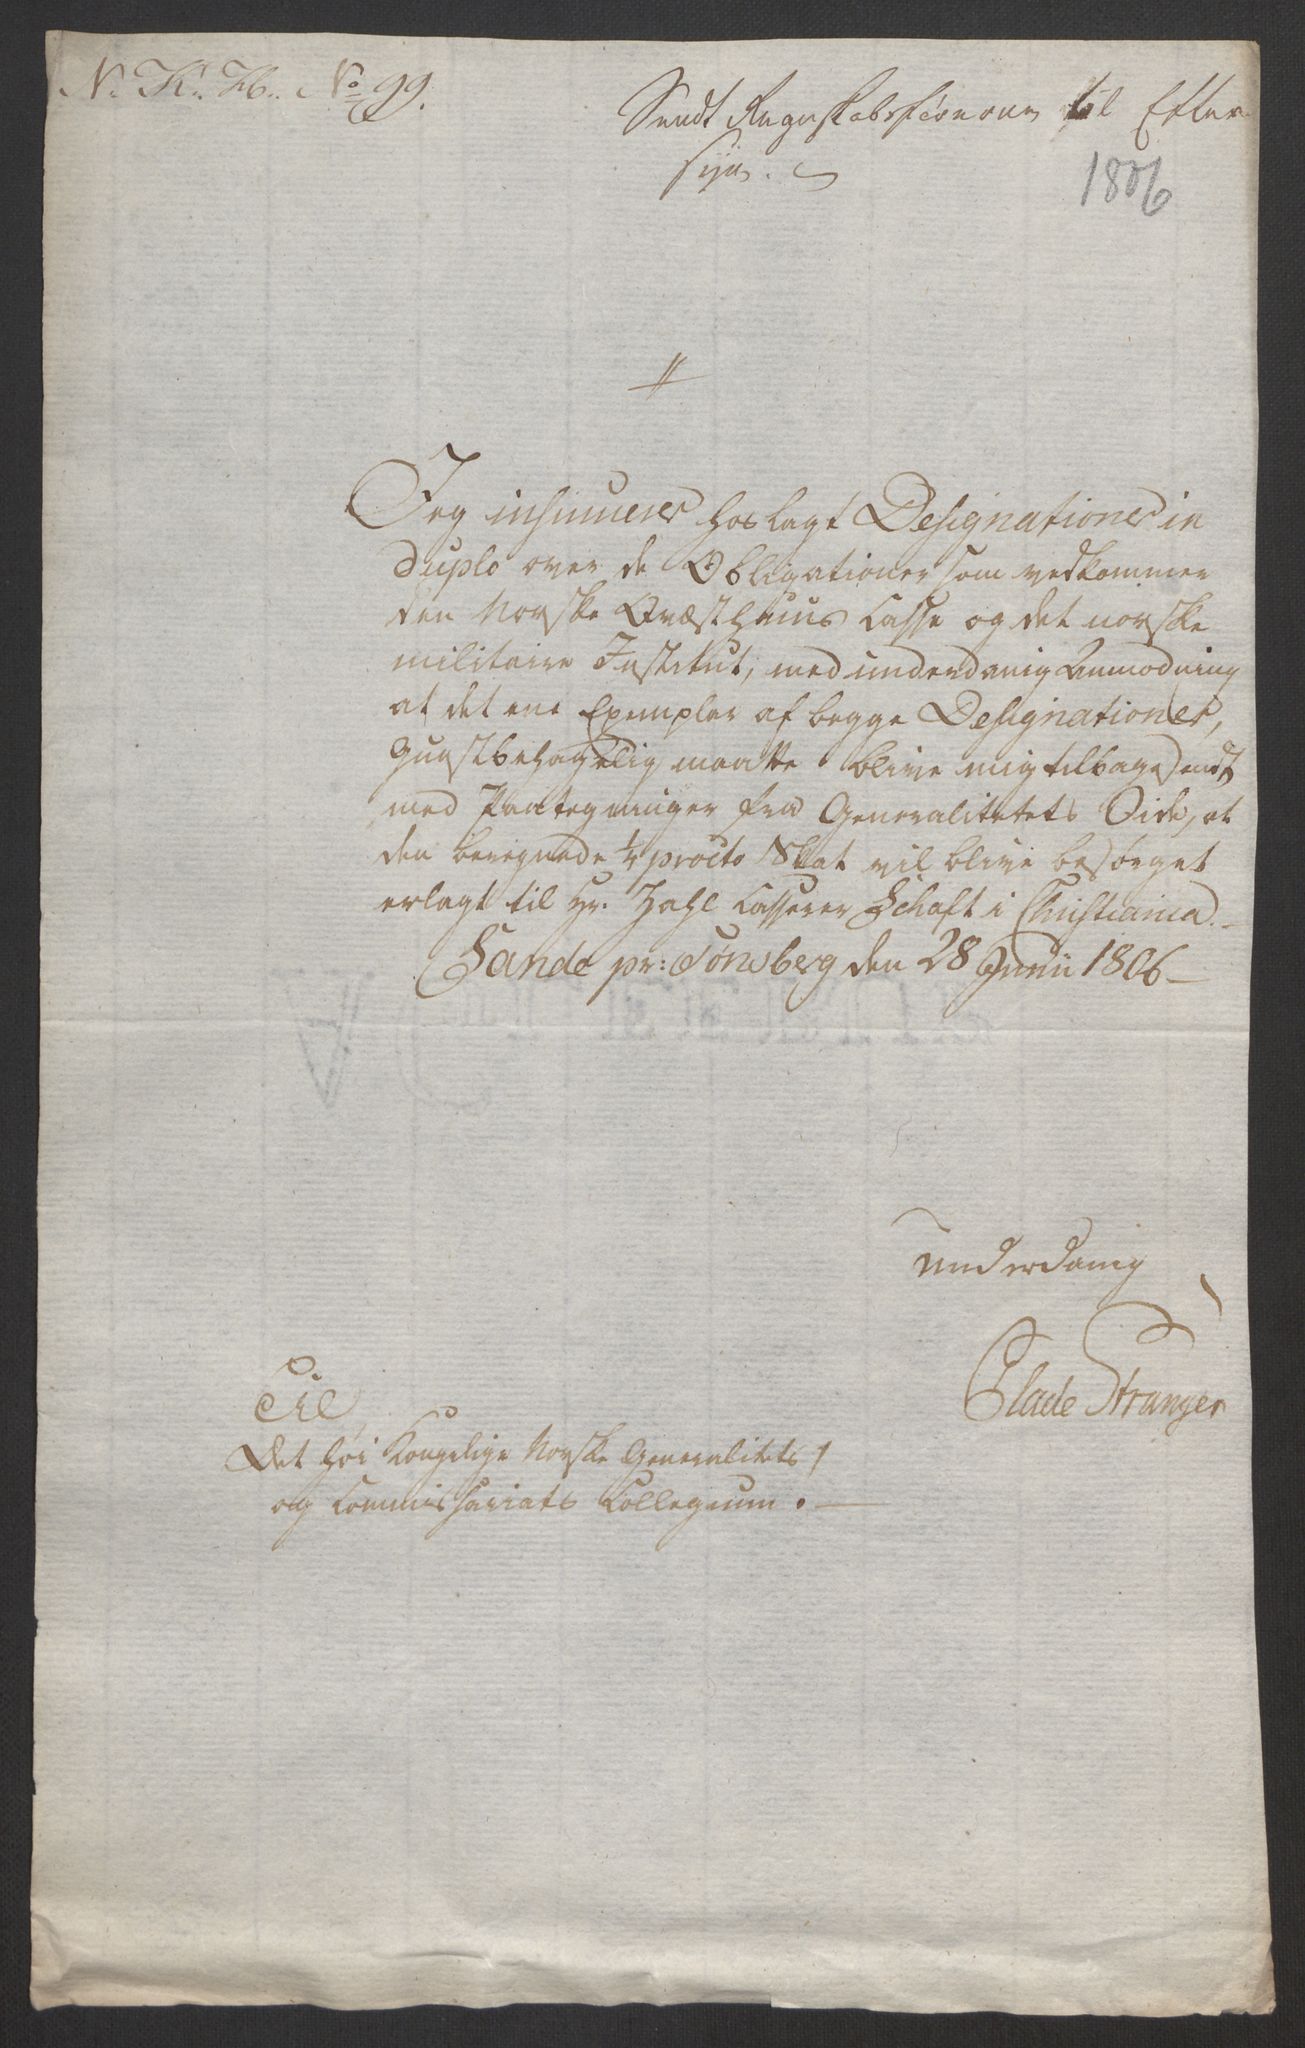 N. K. H. No 99.
Sendt Regnskabsføreren til Efter
syn.
1806
Jeg insinuerer hoslagt Designationer in
duplo over de Obligationer som vedkommer
den Norske Qvæsthuus Casse og det norske
militaire Institut, med underdanig Anmodning
at det ene Exemplar af begge Designationer,
Gunstbehagelig maatte blive mig tilbagesendt
med Paategninger fra Generalitetets Side, at
den beregnede 1/4 procto Skat vil blive besørget
erlagt til Hr. Zahl Casserer Schaft i Christiania.
Sande pr: Tønsberg den 28 Junii 1806
underdanig
Glade Stranger
Til
Det høi Kongelige Norske Generalitets
og Commissariats Collegium.